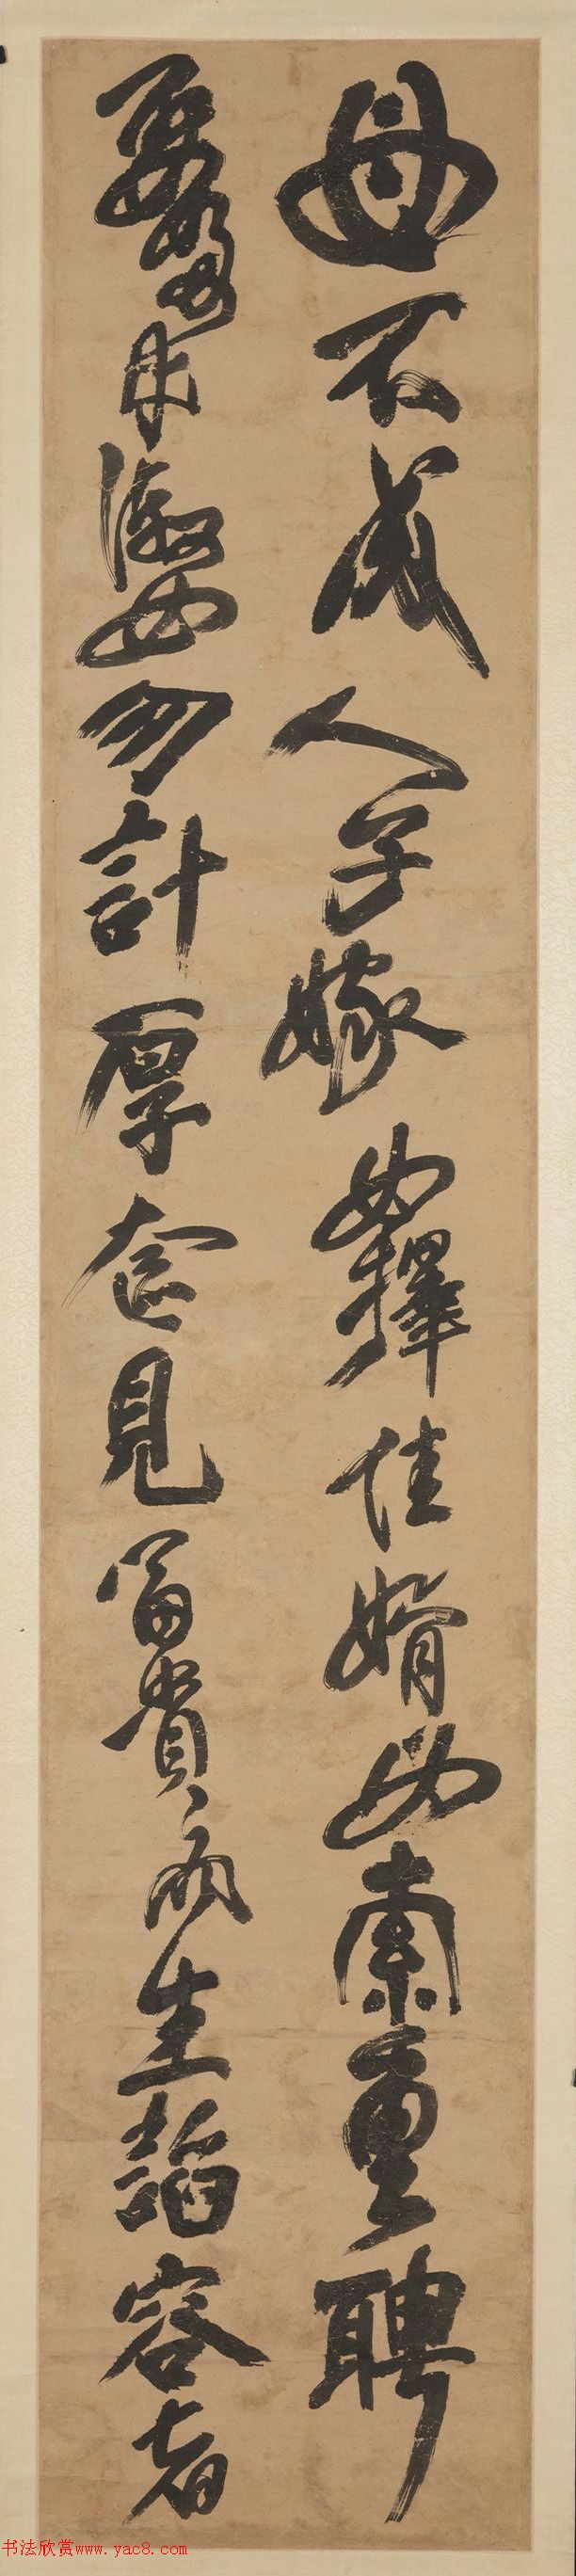 母不成人子嫁女擇佳婿毋索重聘
娶媳求淑女勿計厚奩見富貴而生諂容者
书法欣赏www.yac8.com